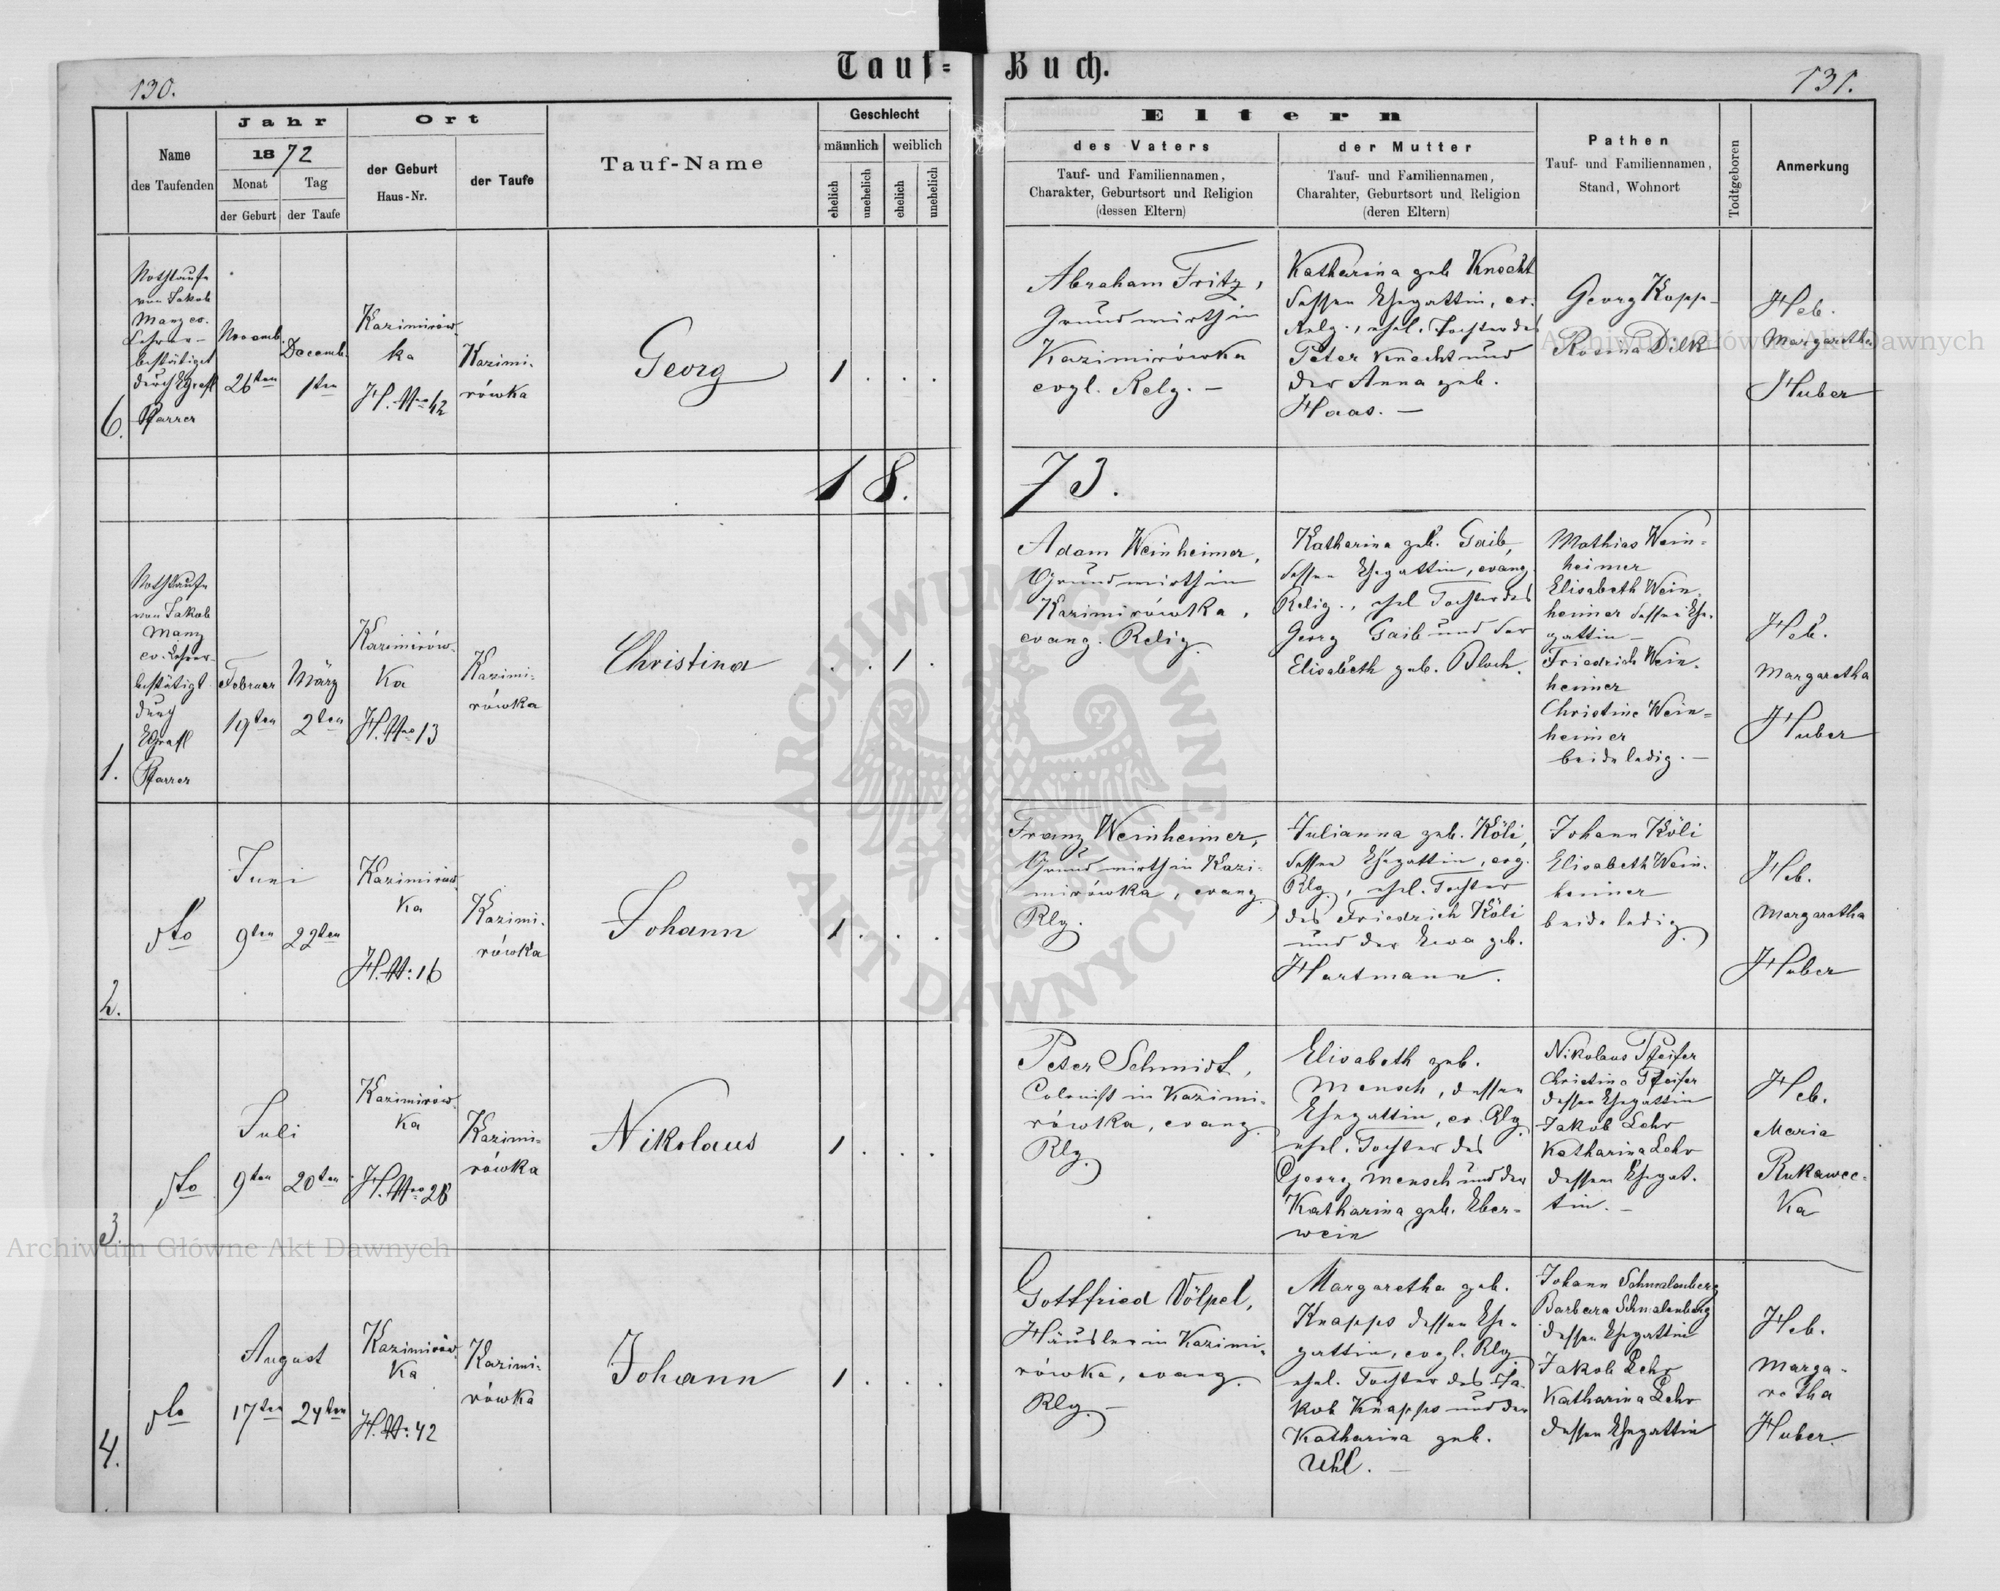 Tauf-Buch.
130.
131.
Name
des Taufenden
Jahr
1872
Monat
der Geburt
Tag
der Taufe
Ort
der Geburt
Haus-Nr.
der Taufe
Tauf-Name
Geschlecht
männlich
weiblich
ehelich
unehelich
ehelich
unehelich
Eltern
des Vaters
Tauf- und Familiennamen,
Charakter, Geburtsort und Religion
(dessen Eltern)
der Mutter
Tauf- und Familiennamen,
Charahter, Geburtsort und Religion
(deren Eltern)
Pathen
Tauf- und Familiennamen,
Stand, Wohnort
Todtgeboren
Anmerkung
6.
Nothtaufe
von Jakob
Manz ev.
Lehrer-
bestätigt
durch
Pfarrer
Novemb.
26ten
Decemb.
1ten
Kazimirów-
ka
H. Nro 42
Kazimi-
rówka
Georg
1 . . .
Abraham Fritz,
Grundwirth in
Kazimirówka
evgl. Relg. —
Katharina geb Knecht
dessen Ehegattin, ev.
Relg., ehel. Tochter des
Peter Knecht und
der Anna geb.
Haas. —
Georg Kopp-
Rosina Dilk
Heb.
Margaretha
Huber
18.
73.
1.
Nothtaufe
von Jakob
Manz
ev. Lehrer-
bestätigt
durch
Pfarrer
Februar
19ten
März
2ten
Kazimirów-
ka
H. Nro 13
Kazimi-
rówka
Christina
. . 1 .
Adam Weinheimer,
Grundwirth in
Kazimirówka,
evang. Relig.
Katharina geb. Gaib,
dessen Ehegattin, evang.
Relig., ehel Tochter des
Georg Gaib und der
Elisabeth geb. Bloch.
Mathias Wein=
heimer
Elisabeth Wein-
heimer dessen Ehe-
gattin—
Friedrich Wein-
heimer
Christine Wein=
heimer
beide ledig. —
Heb.
Margaretha
Huber
2.
dto
Juni
9ten
22ten
Kazimirów-
ka
H. N: 16
Kazimi-
rówka
Johann
1 . . .
Franz Weinheimer,
Grundwirth in Kazi-
mirówka, evang.
Rlg.
Julianna geb. Köli,
dessen Ehegattin, evg.
Rlg., ehel. Tochter
des Friedrich Köli
und der Ewa geb.
Hartmann.
Johann Köli
Elisabeth Wein-
heimer
beide ledig.
Heb.
Margaretha
Huber
3.
dto
Juli
9ten
20ten
Kazimirów-
ka
H. Nro 28
Kazimi-
rówka
Nikolaus
1 . . .
Peter Schmidt,
Colonist in Kazimi-
rówka, evang.
Rlg.
Elisabeth geb.
Mensch, dessen
Ehegattin, ev. Rlg.
ehel. Tochter des
Georg Mensch und der
Katharina geb. Eber-
wein
Nikolaus Pfeifer
Christina Pfeifer
dessen Ehegattin
Jakob Lehr
Katharina Lehr
dessen Ehegat-
tin. —
Heb.
Maria
Rukawec-
ka
4.
dto
August
17ten
24ten
Kazimirów-
ka
H. N: 42
Kazimi-
rówka
Johann
1 . . .
Gottfried Völpel,
Häusler in Kazimi-
rówka, evang.
Rlg. —
Margaretha geb.
Knapps dessen Ehe-
gattin, evgl. Rlg.
ehel. Tochter des Ja-
kob Knapps und der
Katharina geb.
Uhl. —
Johann Schmalenberg
Barbara Schmalenberg
dessen Ehegattin
Jakob Lehr
Katharina Lehr
dessen Ehegattin
Heb.
Marga-
retha
Huber.
Archiwum Główne Akt Dawnych
Archiwum Główne Akt Dawnych
ARCHIWUM GŁÓWNE
AKT DAWNYCH